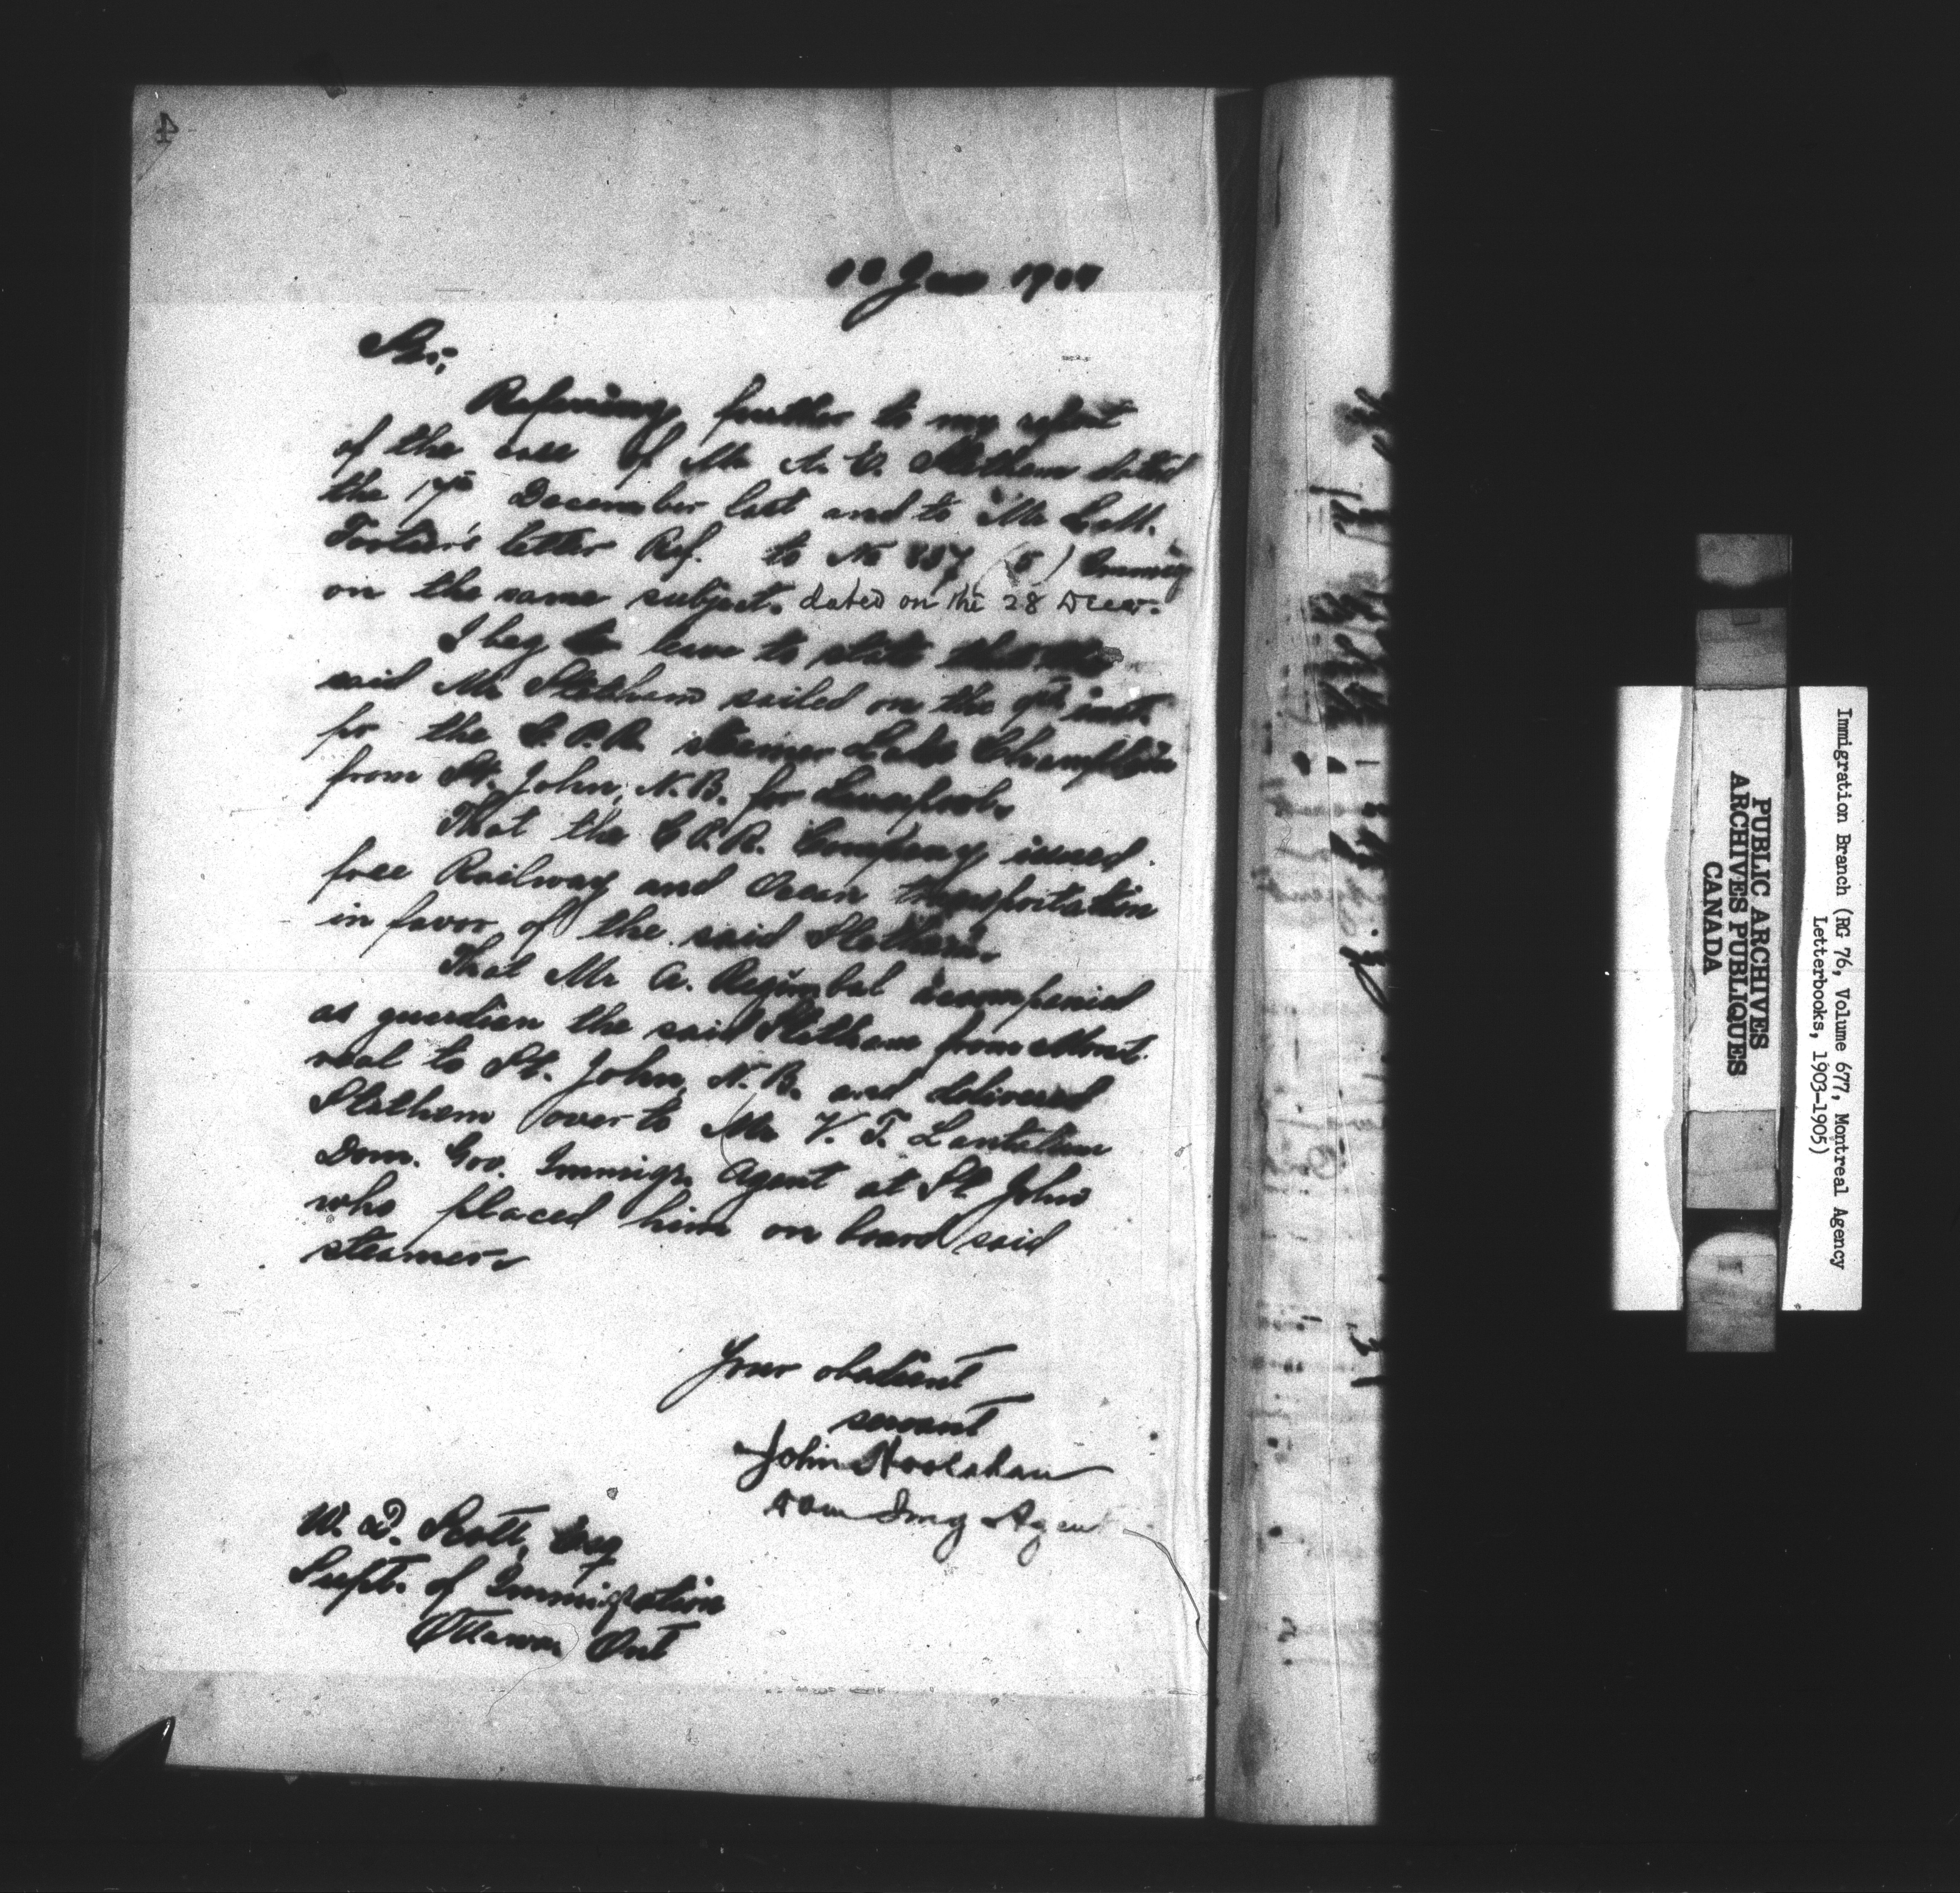 4
Jan 1904
Sir;
Referring further to my report
of the case of Mr A. E. Stetham dated
the 17th December last and to Mr L. M.
Fortier's letter Ref. to No 837 (5) Immig
on the same subject. dated on the 28 Decer.
I beg leave to state that the
said Mr Stetham sailed on the 9th inst.
pr the C.P.R. steamer Lake Champlain
from St. John, N.B. for Liverpool.
That the C.P.R. Company issued
free Railway and Ocean transportation
in favor of the said Stetham.
That Mr A. Regimbal accompanied
as guardian the said Stetham from Mont-
real to St. John, N.B. and delivered
Stetham over to Mr V. T. Lantalum
Dom. Gov. Immigr. Agent at St. John
who placed him on board said
steamer.
Your obedient
servant
John Hoolahan
Dom Img Agent
W. D. Scott, Esq
Supt. of Immigration
Ottawa Ont
Immigration Branch (RG 76, Volume 677, Montreal Agency
Letterbooks, 1903-1905)
PUBLIC ARCHIVES
ARCHIVES PUBLIQUES
CANADA